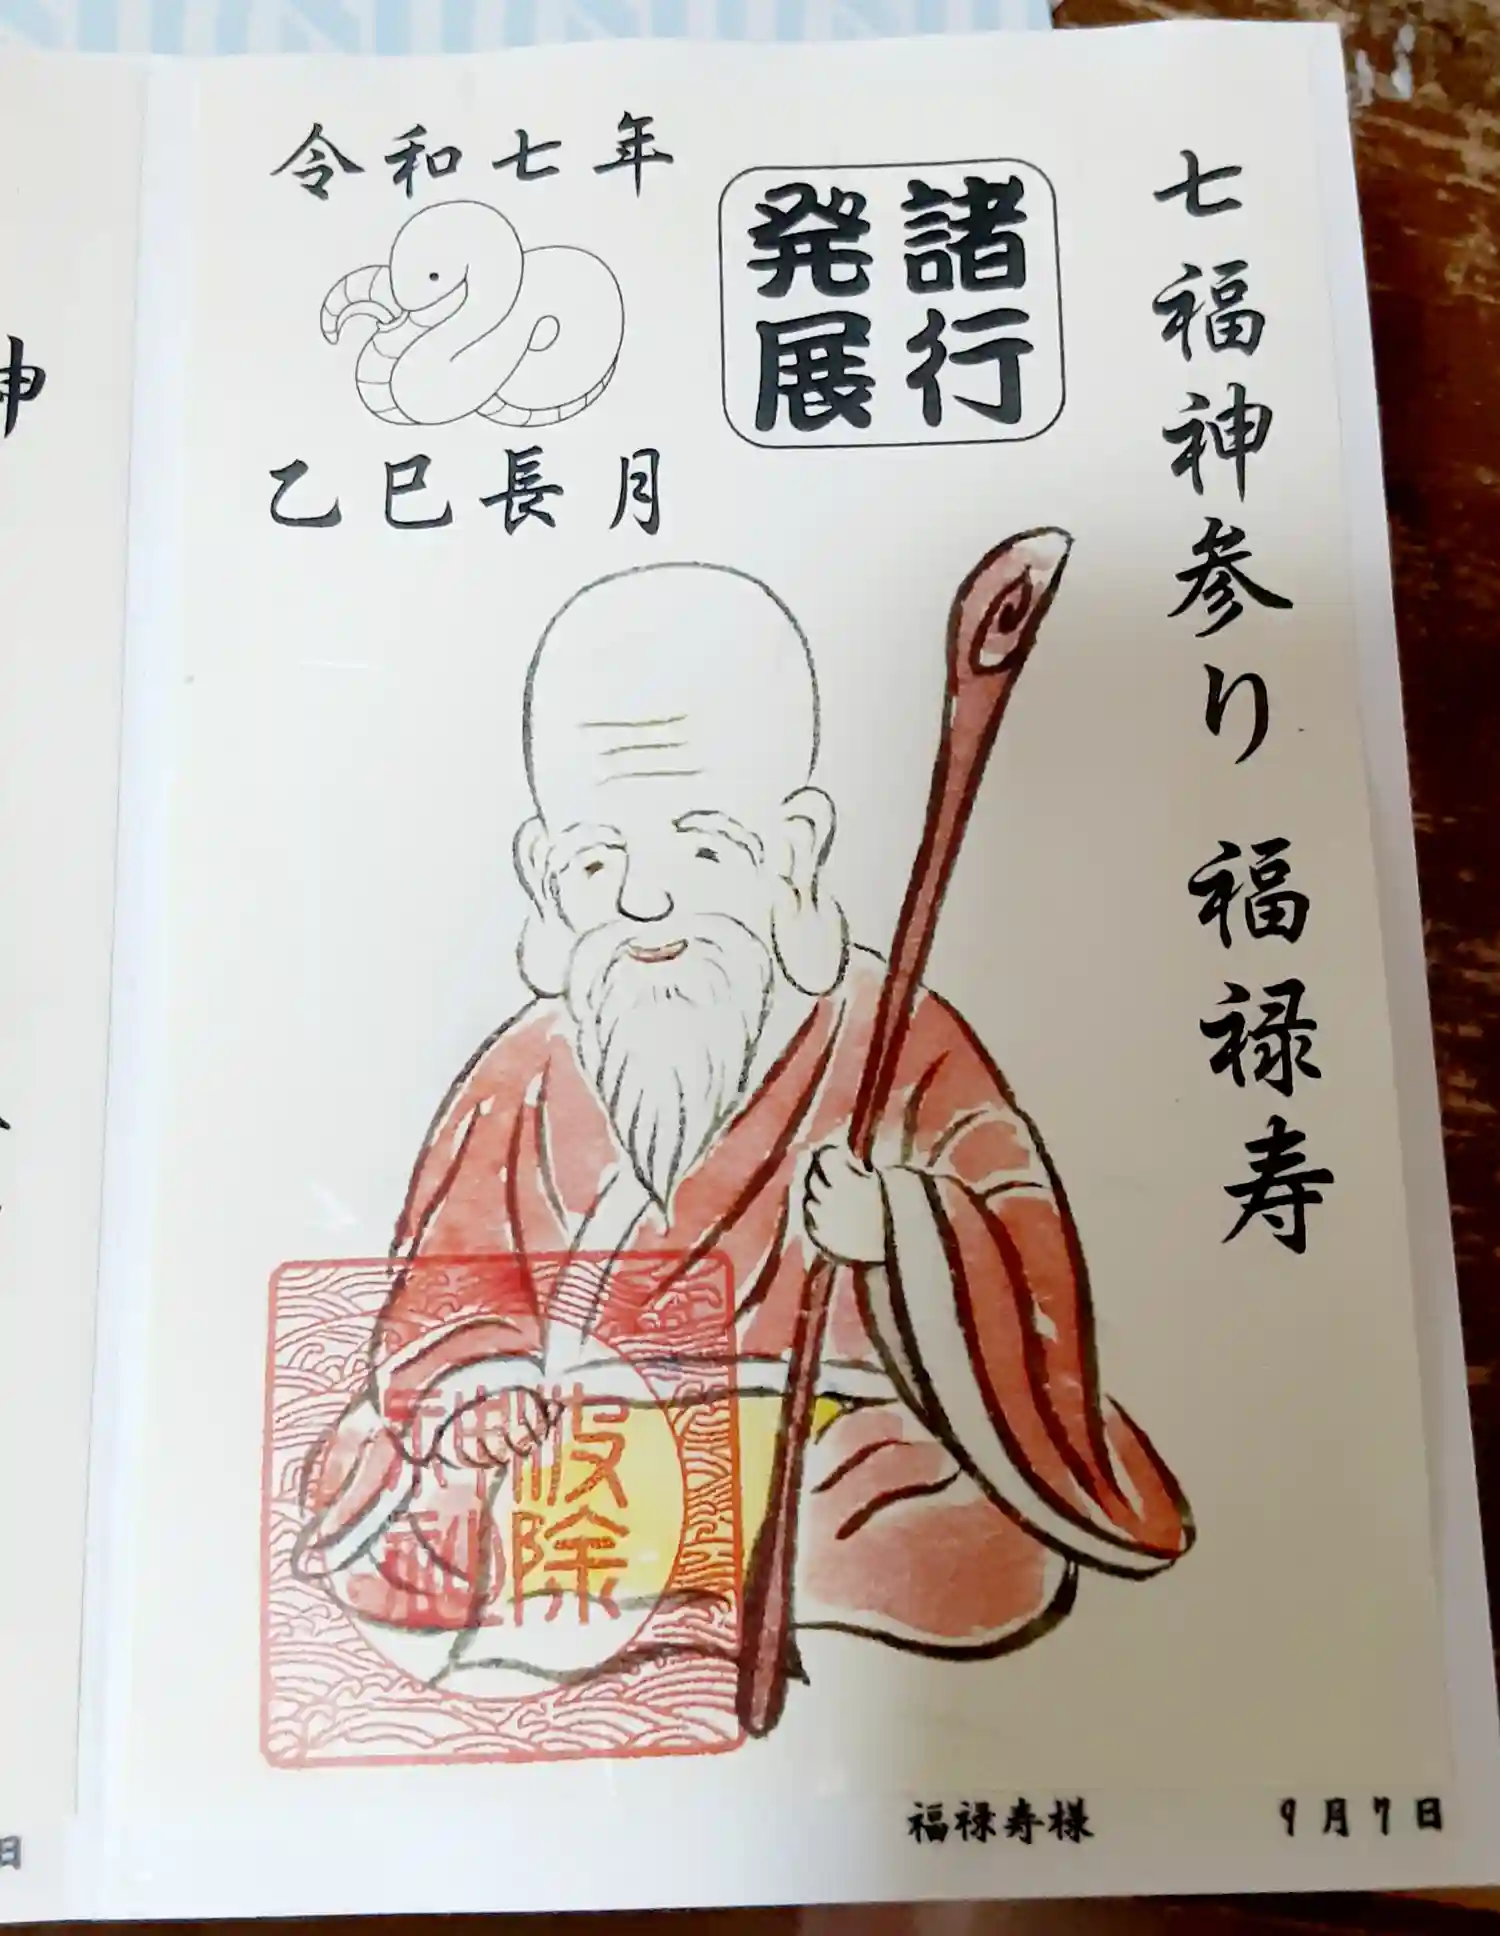 七福神参り 福禄寿
諸行
発展
令和七年
乙巳長月
波除
神社
福禄寿様
9月7日
神
日